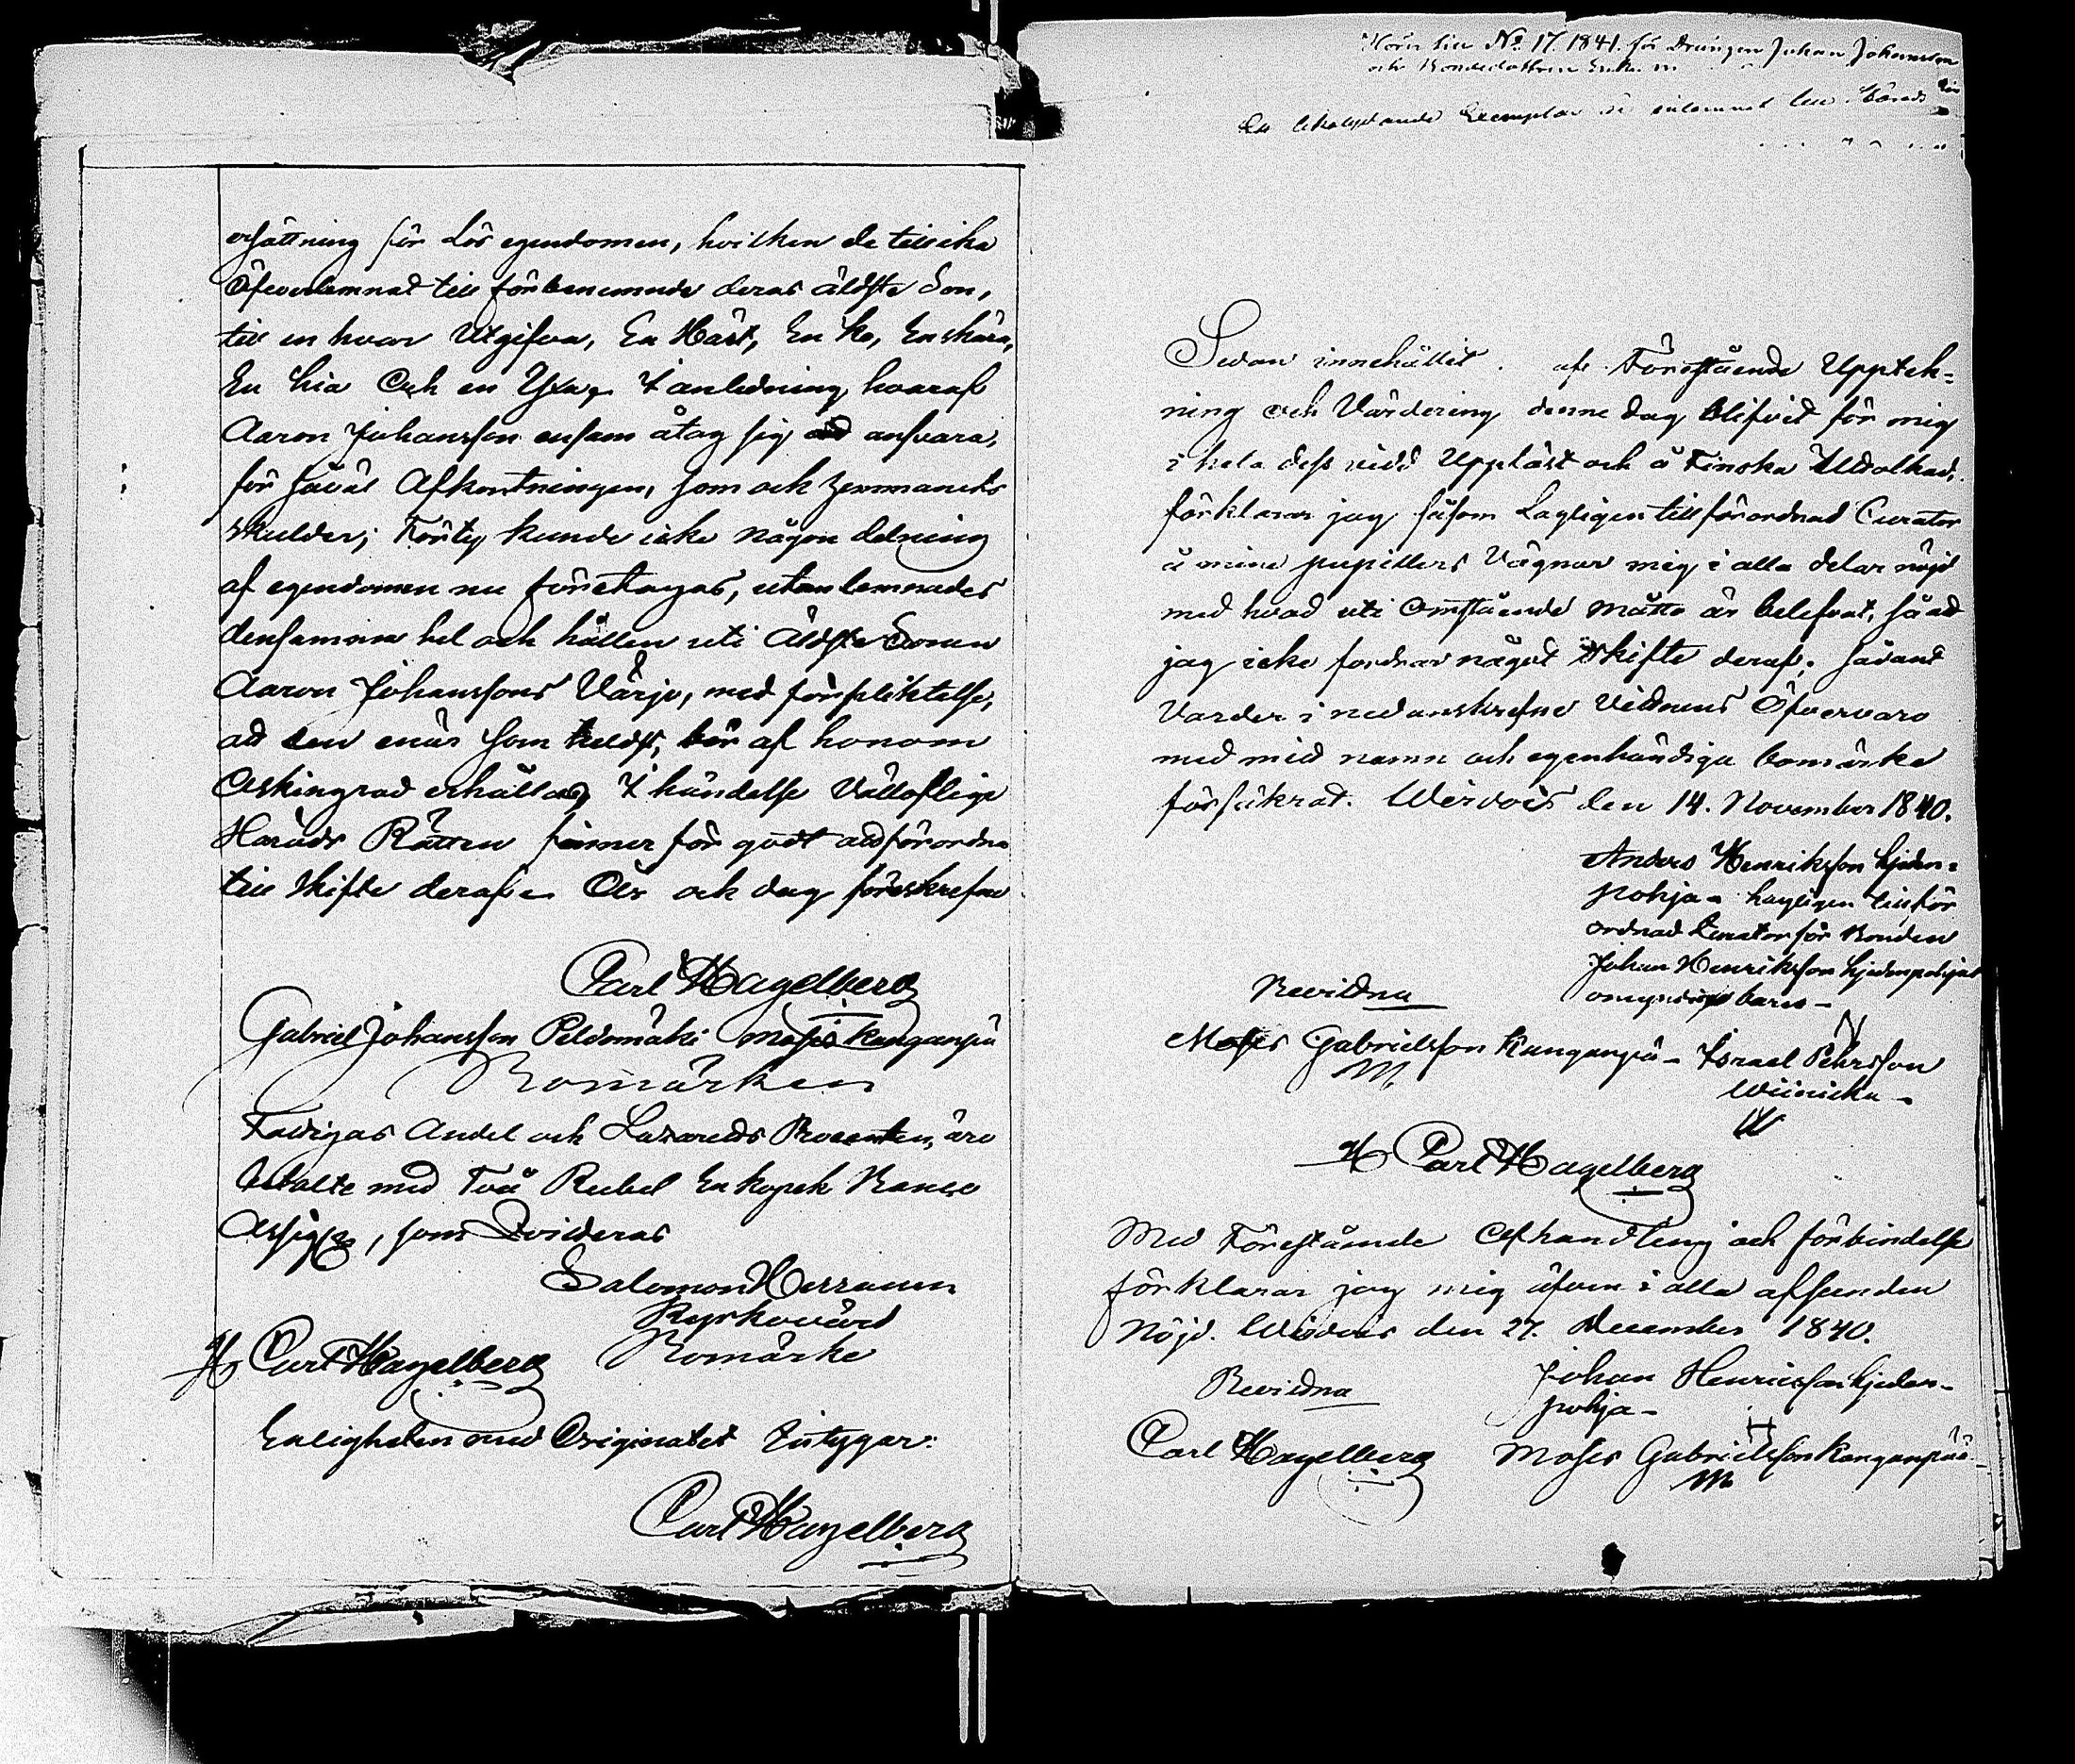 ersättning för Lös egendomen, hvilken de tillika
Öfverlemnat till förbenemnde deras äldste Son,
till en hvar Utgifva, En Häst, En Ko, En skära,
En lia Och en Yxa, I anledning hvaraf
Aaron Johansson ensam åtog sig ad ansvara,
för såväl Afkortningen, som ock gemmanets
skulder; Förty kunde icke någon delning
af egendomen nu företagas, utan lemnades
densamma hel och hållen uti Äldste Sonen
Aaron Johanssons Värjo, med förpliktelse,
ad den enär som heldst, bör af honom
Oskingrad erhållas, I händelse Välloflige
Härads Rätten finner för godt ad förordna
till skifte deraf. Års och dag föreskrefne
Carl Hagelberg
Gabriel Johansson Peldomäki Moses Kanganpä
Bomärken
Fattigas Andel och Lazaretts Procenten, äro
betalte med Två Rubel En kopek Banco
Assigne, som Qvitteras
Salomon Herranen
Kyrkovärd
H Carl Hagelberg Bomärke
Enligheten med Originalet Intygar:
Carl Hagelberg
Hörer till No. 17. 1841. för Drängen Johan Johansson
och Bondedottren
Ett likalydande Exemplar är inlemnat till Härads
Sedan innehållet af Förestående Upptek-
ning och Värdering denne dag blifvit för mig
i hela dess vidd Uppläst och å Finska Uttolkad,
förklarar jag såsom Lagligen tillförordnad Curator
å mine pupillers Vägnar mig i alla delar nöjd
med hvad uti Omstående måtto är belefvat, så ad
jag icke fordrar något skifte deraf; sådant
Varder i nedanskrefne Vittnens Öfvervaro
med mid namn och egenhändiga bomärke
försäkrat. Wirdois den 14. November 1840.
Anders Henriksson Hjeden-
pohja - Lagligen tillför
ordnad Curator för Bonden
Johan Henriksson Hjedenpohjas
omyndige barn -
Bevittna
Moses Gabrielsson Kanganpä - Israel Pehrsson
M Wiinicka -
W
H Carl Hagelberg
Med Förestående Afhandling och förbindelse
förklarar jag mig äfven i alla afseenden
Nöjd. Wirdois den 27. December 1840.
Bevittna Johan Henricsson Hjeden-
pohja -
H
Carl Hagelberg Moses Gabrielsson Kanganpää
M